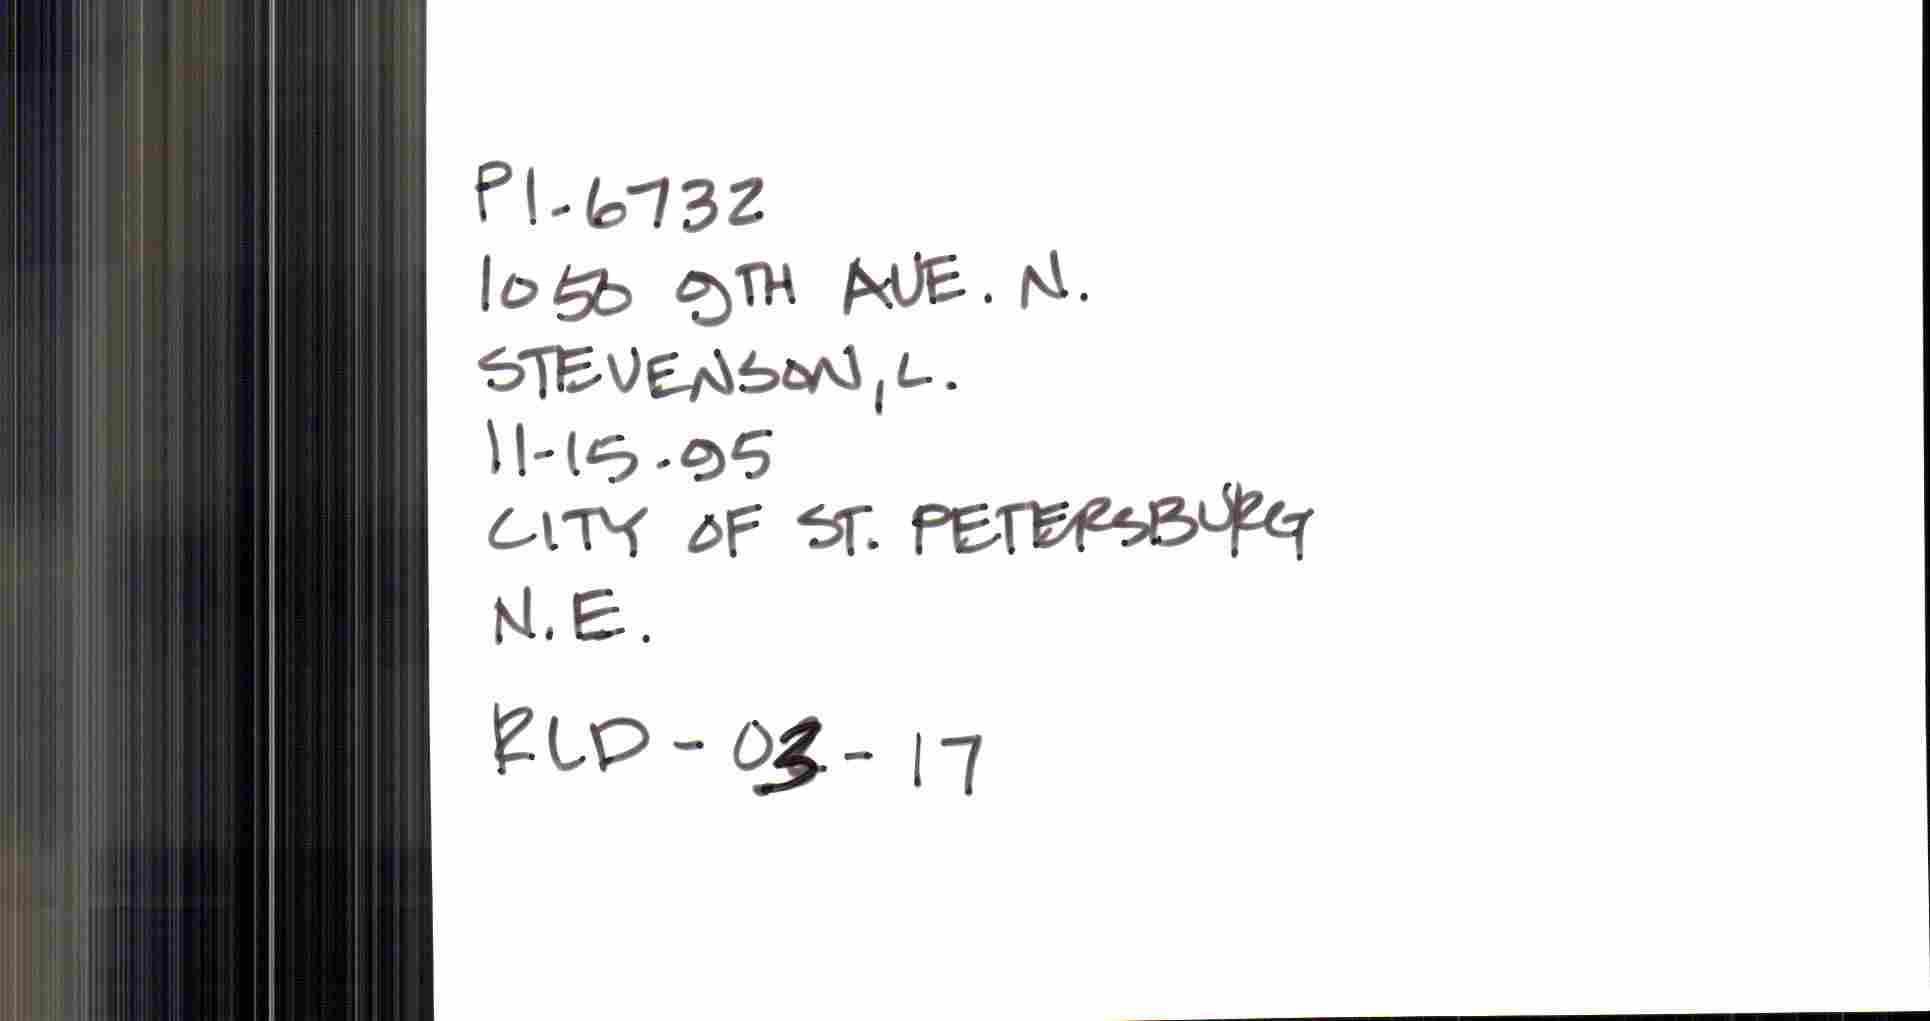 PI-6732
1050 9TH AVE. N.
STEVENSON, L.
11-15-95
CITY OF ST. PETERSBURG
N.E.
RLD - 03 - 17